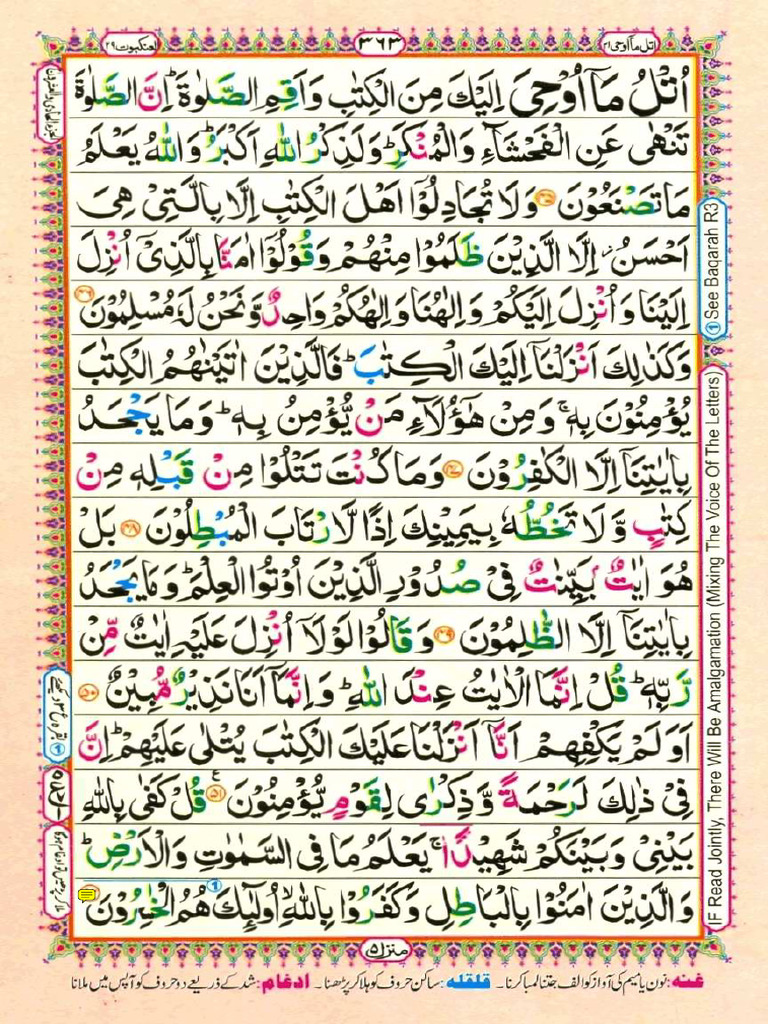 اتل ما اوحی ۲۱
۳۶۳
العنکبوت ۲۹
اُتْلُ مَاۤ اُوْحِیَ اِلَیْكَ مِنَ الْكِتٰبِ وَاَقِمِ الصَّلٰوةَ ؕ اِنَّ الصَّلٰوةَ
تَنْهٰی عَنِ الْفَحْشَآءِ وَالْمُنْكَرِ ؕ وَلَذِكْرُ اللّٰهِ اَكْبَرُ ؕ وَاللّٰهُ یَعْلَمُ
مَا تَصْنَعُوْنَ ۴۵ وَلَا تُجَادِلُوْۤا اَهْلَ الْكِتٰبِ اِلَّا بِالَّتِیْ هِیَ
اَحْسَنُ ۖ اِلَّا الَّذِیْنَ ظَلَمُوْا مِنْهُمْ وَقُوْلُوْۤا اٰمَنَّا بِالَّذِیْۤ اُنْزِلَ
اِلَیْنَا وَاُنْزِلَ اِلَیْكُمْ وَاِلٰهُنَا وَاِلٰهُكُمْ وَاحِدٌ وَّنَحْنُ لَهٗ مُسْلِمُوْنَ ۴۶
وَكَذٰلِكَ اَنْزَلْنَاۤ اِلَیْكَ الْكِتٰبَ ؕ فَالَّذِیْنَ اٰتَیْنٰهُمُ الْكِتٰبَ
یُؤْمِنُوْنَ بِهٖ ۚ وَمِنْ هٰۤؤُلَآءِ مَنْ یُّؤْمِنُ بِهٖ ؕ وَمَا یَجْحَدُ
بِاٰیٰتِنَاۤ اِلَّا الْكٰفِرُوْنَ ۴۷ وَمَا كُنْتَ تَتْلُوْا مِنْ قَبْلِهٖ مِنْ
كِتٰبٍ وَّلَا تَخُطُّهٗ بِیَمِیْنِكَ اِذًا لَّارْتَابَ الْمُبْطِلُوْنَ ۴۸ بَلْ
هُوَ اٰیٰتٌۢ بَیِّنٰتٌ فِیْ صُدُوْرِ الَّذِیْنَ اُوْتُوا الْعِلْمَ ؕ وَمَا یَجْحَدُ
بِاٰیٰتِنَاۤ اِلَّا الظّٰلِمُوْنَ ۴۹ وَقَالُوْا لَوْلَاۤ اُنْزِلَ عَلَیْهِ اٰیٰتٌ مِّنْ
رَّبِّهٖ ؕ قُلْ اِنَّمَا الْاٰیٰتُ عِنْدَ اللّٰهِ ؕ وَاِنَّمَاۤ اَنَا نَذِیْرٌ مُّبِیْنٌ ۵۰
اَوَلَمْ یَكْفِهِمْ اَنَّاۤ اَنْزَلْنَا عَلَیْكَ الْكِتٰبَ یُتْلٰی عَلَیْهِمْ ؕ اِنَّ
فِیْ ذٰلِكَ لَرَحْمَةً وَّذِكْرٰی لِقَوْمٍ یُّؤْمِنُوْنَ ۵۱ قُلْ كَفٰی بِاللّٰهِ
بَیْنِیْ وَبَیْنَكُمْ شَهِیْدًا ۚ یَعْلَمُ مَا فِی السَّمٰوٰتِ وَالْاَرْضِ ؕ
وَالَّذِیْنَ اٰمَنُوْا بِالْبَاطِلِ وَكَفَرُوْا بِاللّٰهِ ۙ اُولٰٓئِكَ هُمُ الْخٰسِرُوْنَ ①
منزل ۵
غنه: نون یا میم کی آواز کو الف جتنا لمبا کرنا۔ قلقله: ساکن حروف کو ہلا کر پڑھنا۔ ادغام: شد کے ذریعے دو حروف کو آپس میں ملانا
① See Baqarah R3
IF Read Jointly, There Will Be Amalgamation (Mixing The Voice Of The Letters)
الجزء الحادی والعشرون